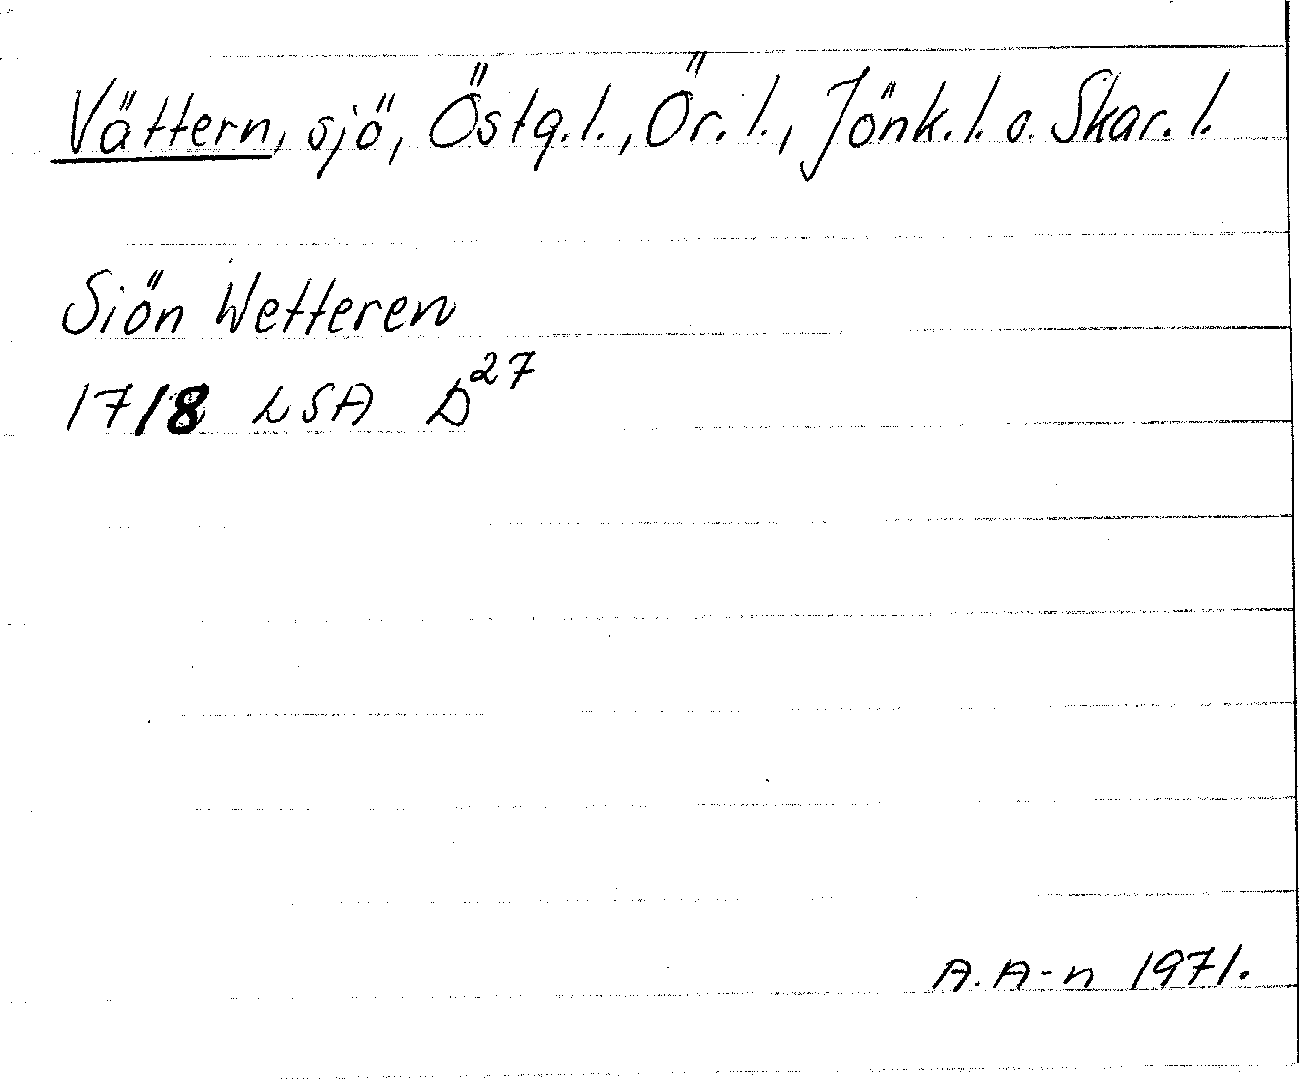 Vättern, sjö, Östg.l., Ör.l., Jönk.l. o. Skar.l.
Siön Wetteren
1718 LSA D27
A. A-n 1971.